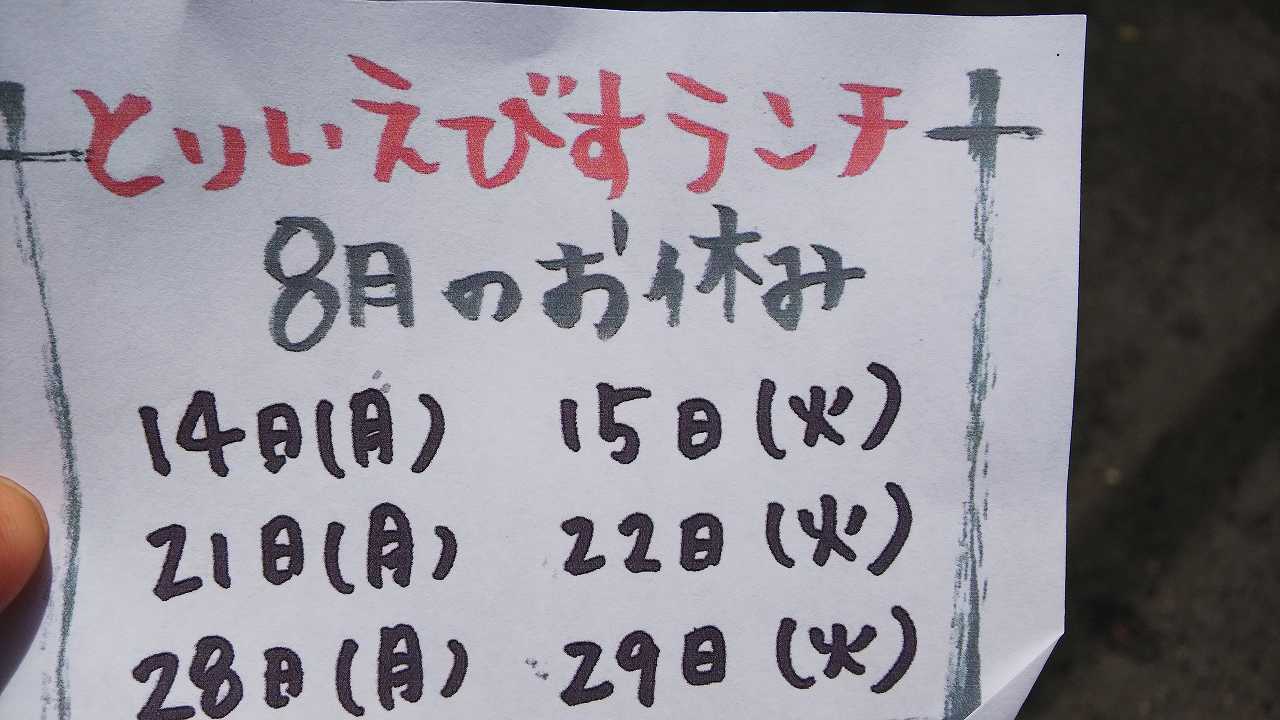 とりいえびすランチ
8月のお休み
14日(月) 15日(火)
21日(月) 22日(火)
28日(月) 29日(火)